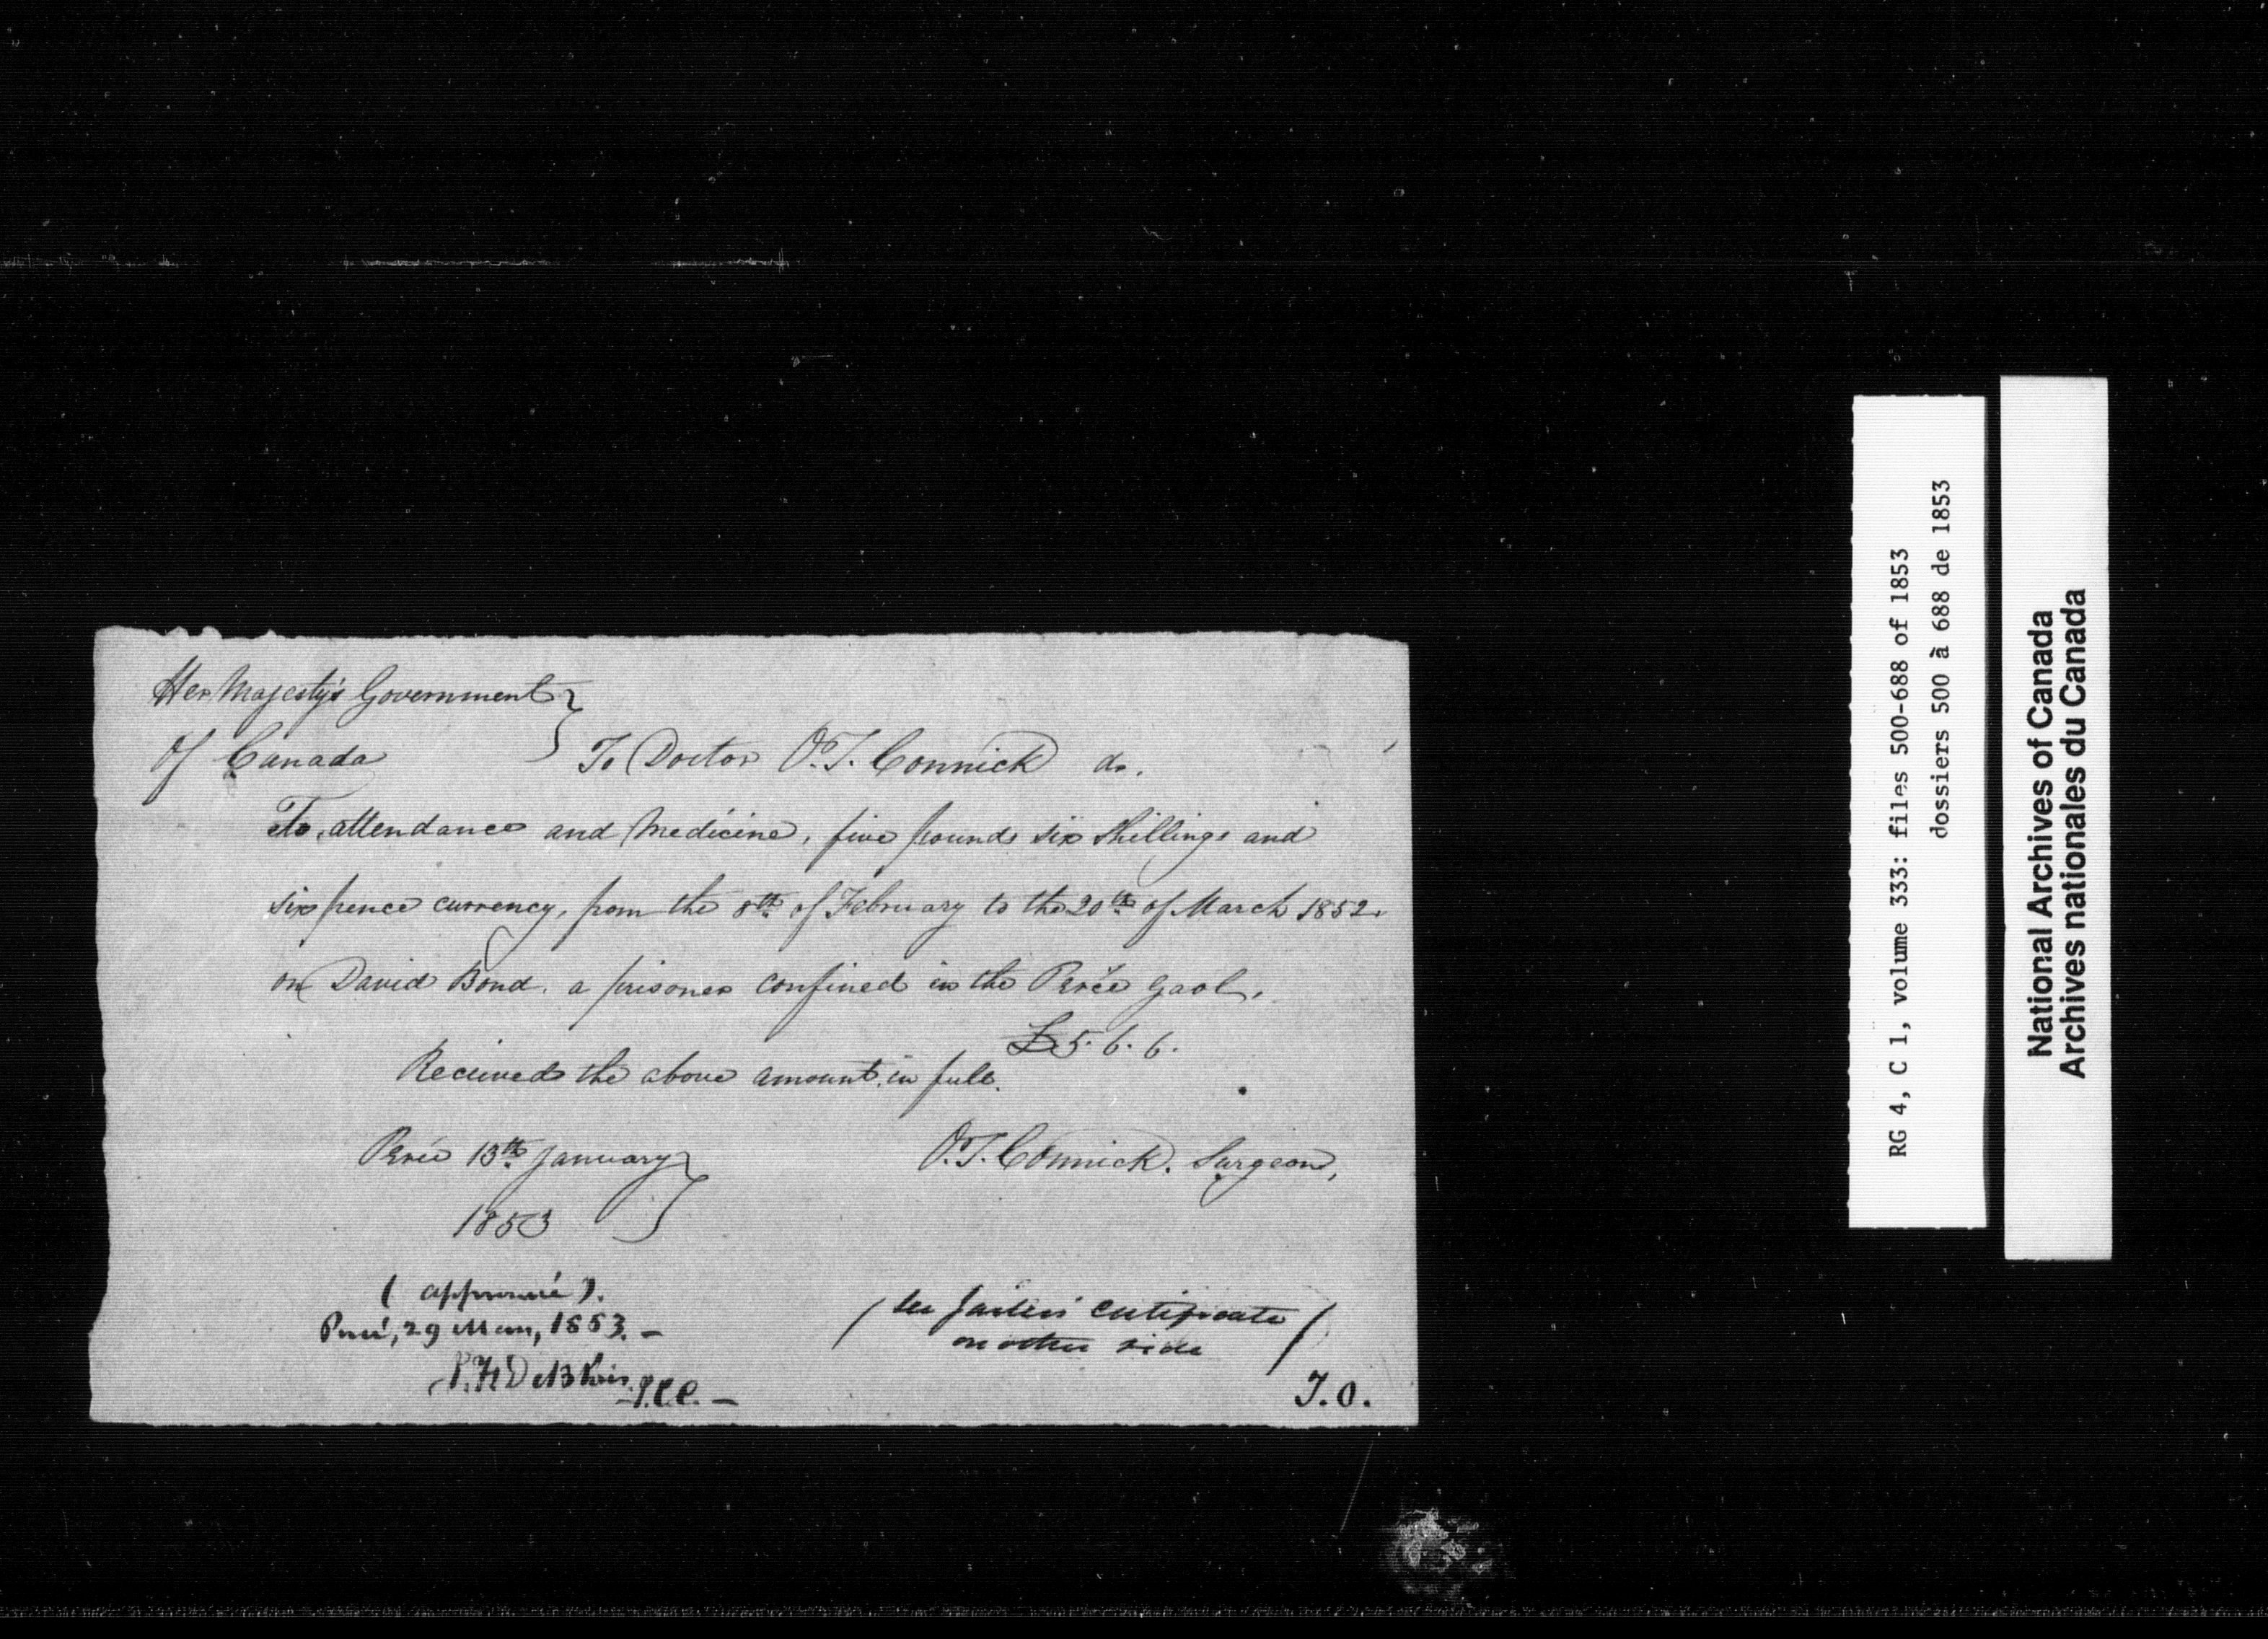 Her Majesty's Government
Of Canada } To Doctor O.T. Connick dr.
To attendance and Medicine, five pounds six Shillings and
six pence currency, from the 8th of February to the 20th of March 1852.
on David Bond. a prisoner confined in the Percé Gaol.
£5. 6. 6.
Received the above amount in full.
Percé 13th January } O.T. Connick. Surgeon,
1853
( approuvé ).
Percé, 29 Mars, 1853. —
P. H DeBlois. J.C.C. —
/ see Jailer's certificate /
on other side
T.O.
RG 4, C 1, volume 333: files 500-688 of 1853
dossiers 500 à 688 de 1853
National Archives of Canada
Archives nationales du Canada